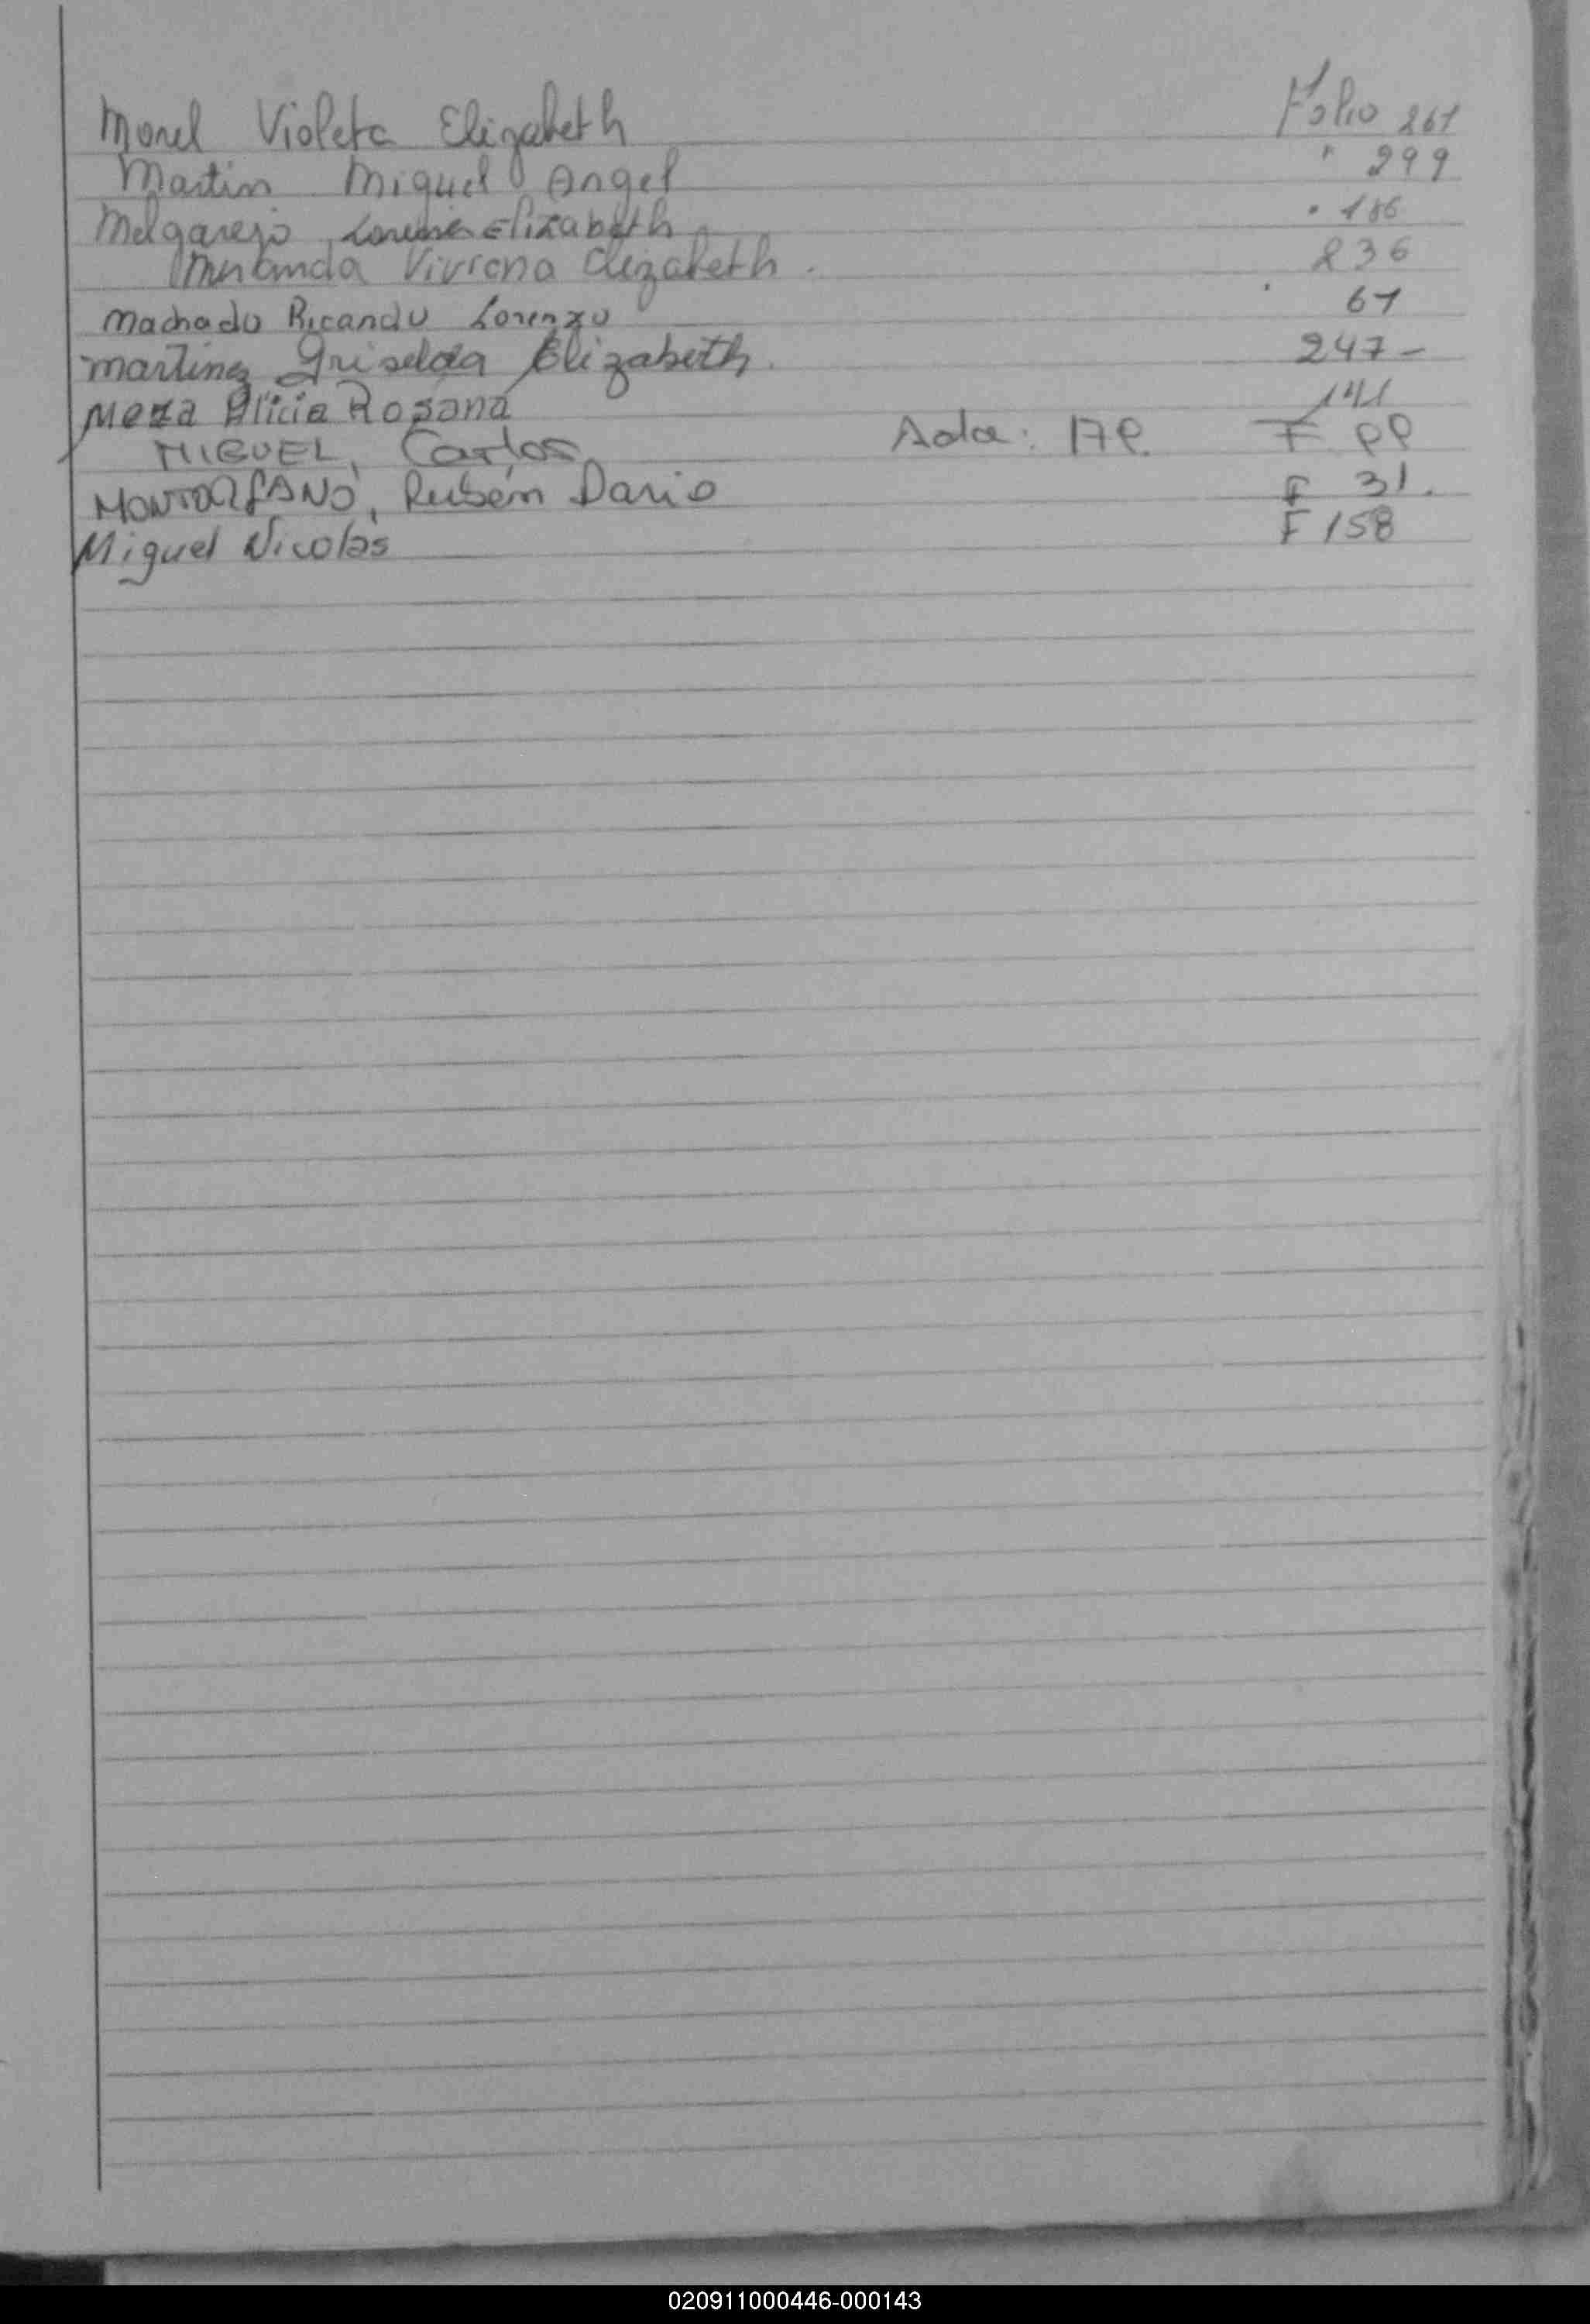 Morel Violeta Elizabeth Folio 261
Martin Miguel Angel " 299
Melgarejo, Lorena Elizabeth " 186
Miranda Viviana Elizabeth. 236
Machado Ricardo Lorenzo " 61
Martinez Griselda Elizabeth. 247-
Meza Alicia Rosana 141
MIGUEL, Carlos Acta: F
MONTORFANO, Rubén Dario F 31.
Miguel Nicolás F 158
020911000446-000143